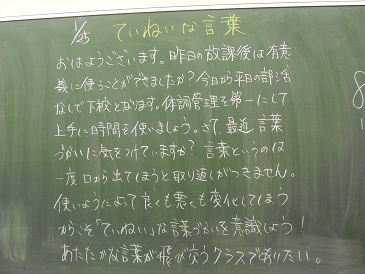 1/25 ていねいな言葉
おはようございます。昨日の放課後は有意
義に使うことができましたか?今日から平日の部活
なしで下校となります。体調管理を第一にして
上手に時間を使いましょう。さて、最近 言葉
づかいに気をつけていますか? 言葉というのは
一度口から出てしまうと取り返しがつきません。
使いようによって良くも悪くも変化してしまう
からこそ「ていねい」な言葉づかいを意識しよう!
あたたかな言葉が飛び交うクラスでありたい。
8